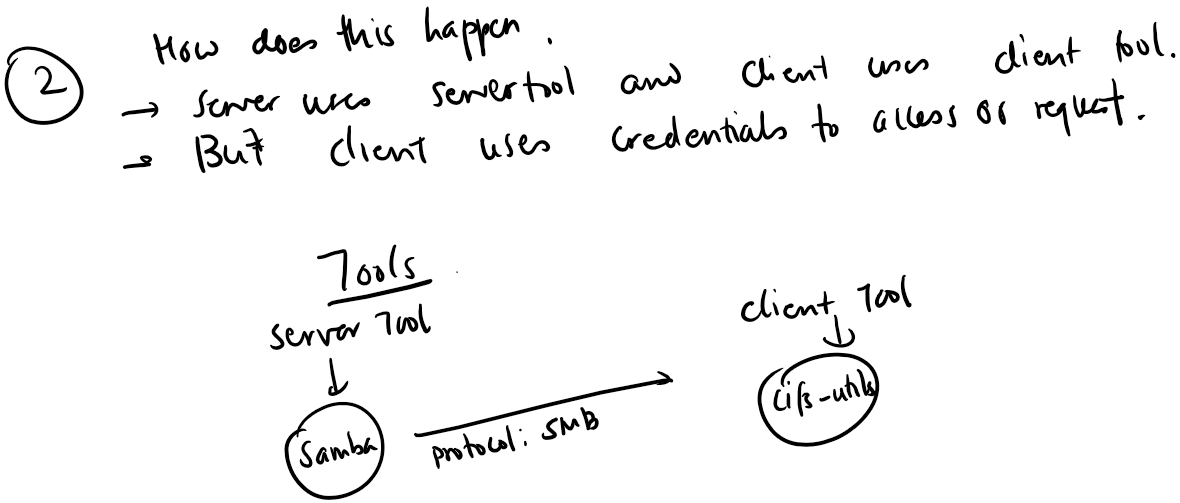 2
How does this happen.
→ Server uses servertool and client uses client tool.
→ But client uses credentials to access or request.
Tools
server Tool
client Tool
Samba
protocol: SMB
cifs-utils